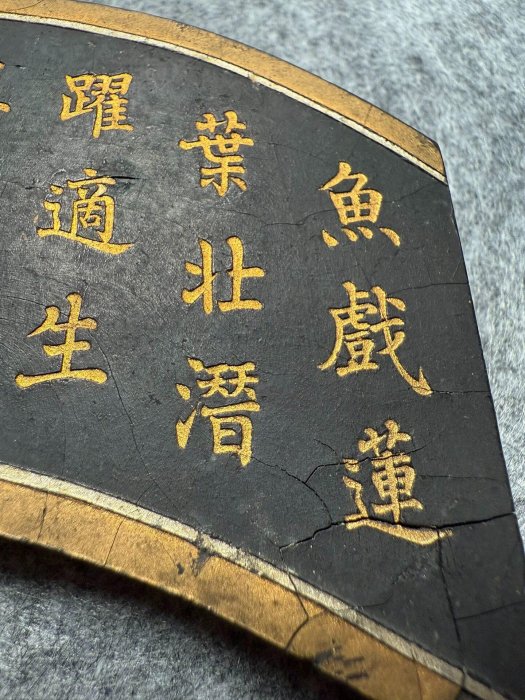 魚戲蓮
葉壯潛
躍適生